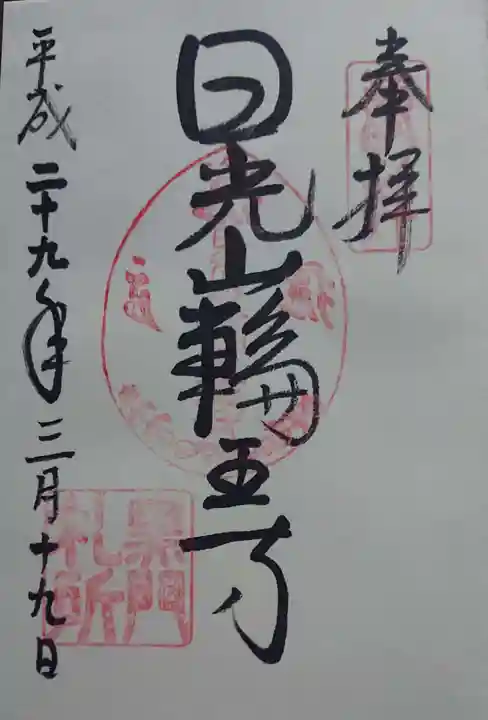 奉拝
日光山輪王寺
平成二十九年三月十九日
黒門
札所